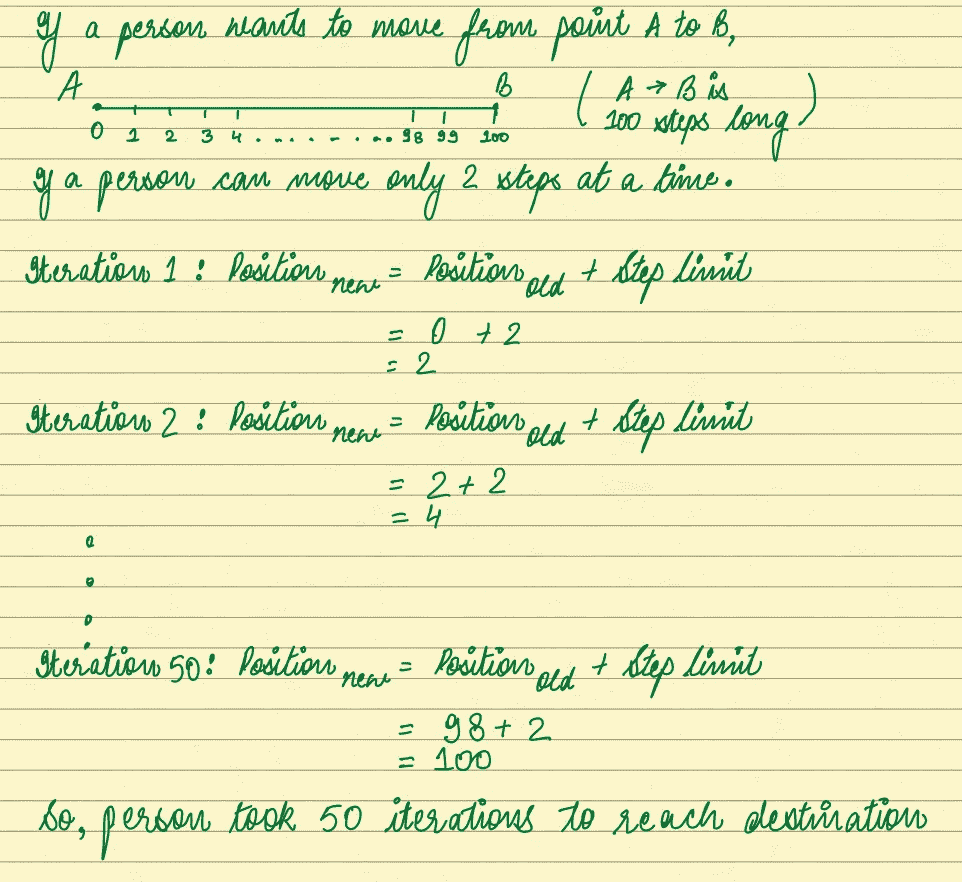 If a person wants to move from point A to B,
A B
0 1 2 3 4 . . . . . - . . . 98 99 100
( A → B is
100 steps long )
If a person can move only 2 steps at a time.
Iteration 1 : Position new = Position old + Step limit
= 0 + 2
= 2
Iteration 2 : Position new = Position old + Step limit
= 2 + 2
= 4
Iteration 50 : Position new = Position old + Step limit
= 98 + 2
= 100
So, person took 50 iterations to reach destination